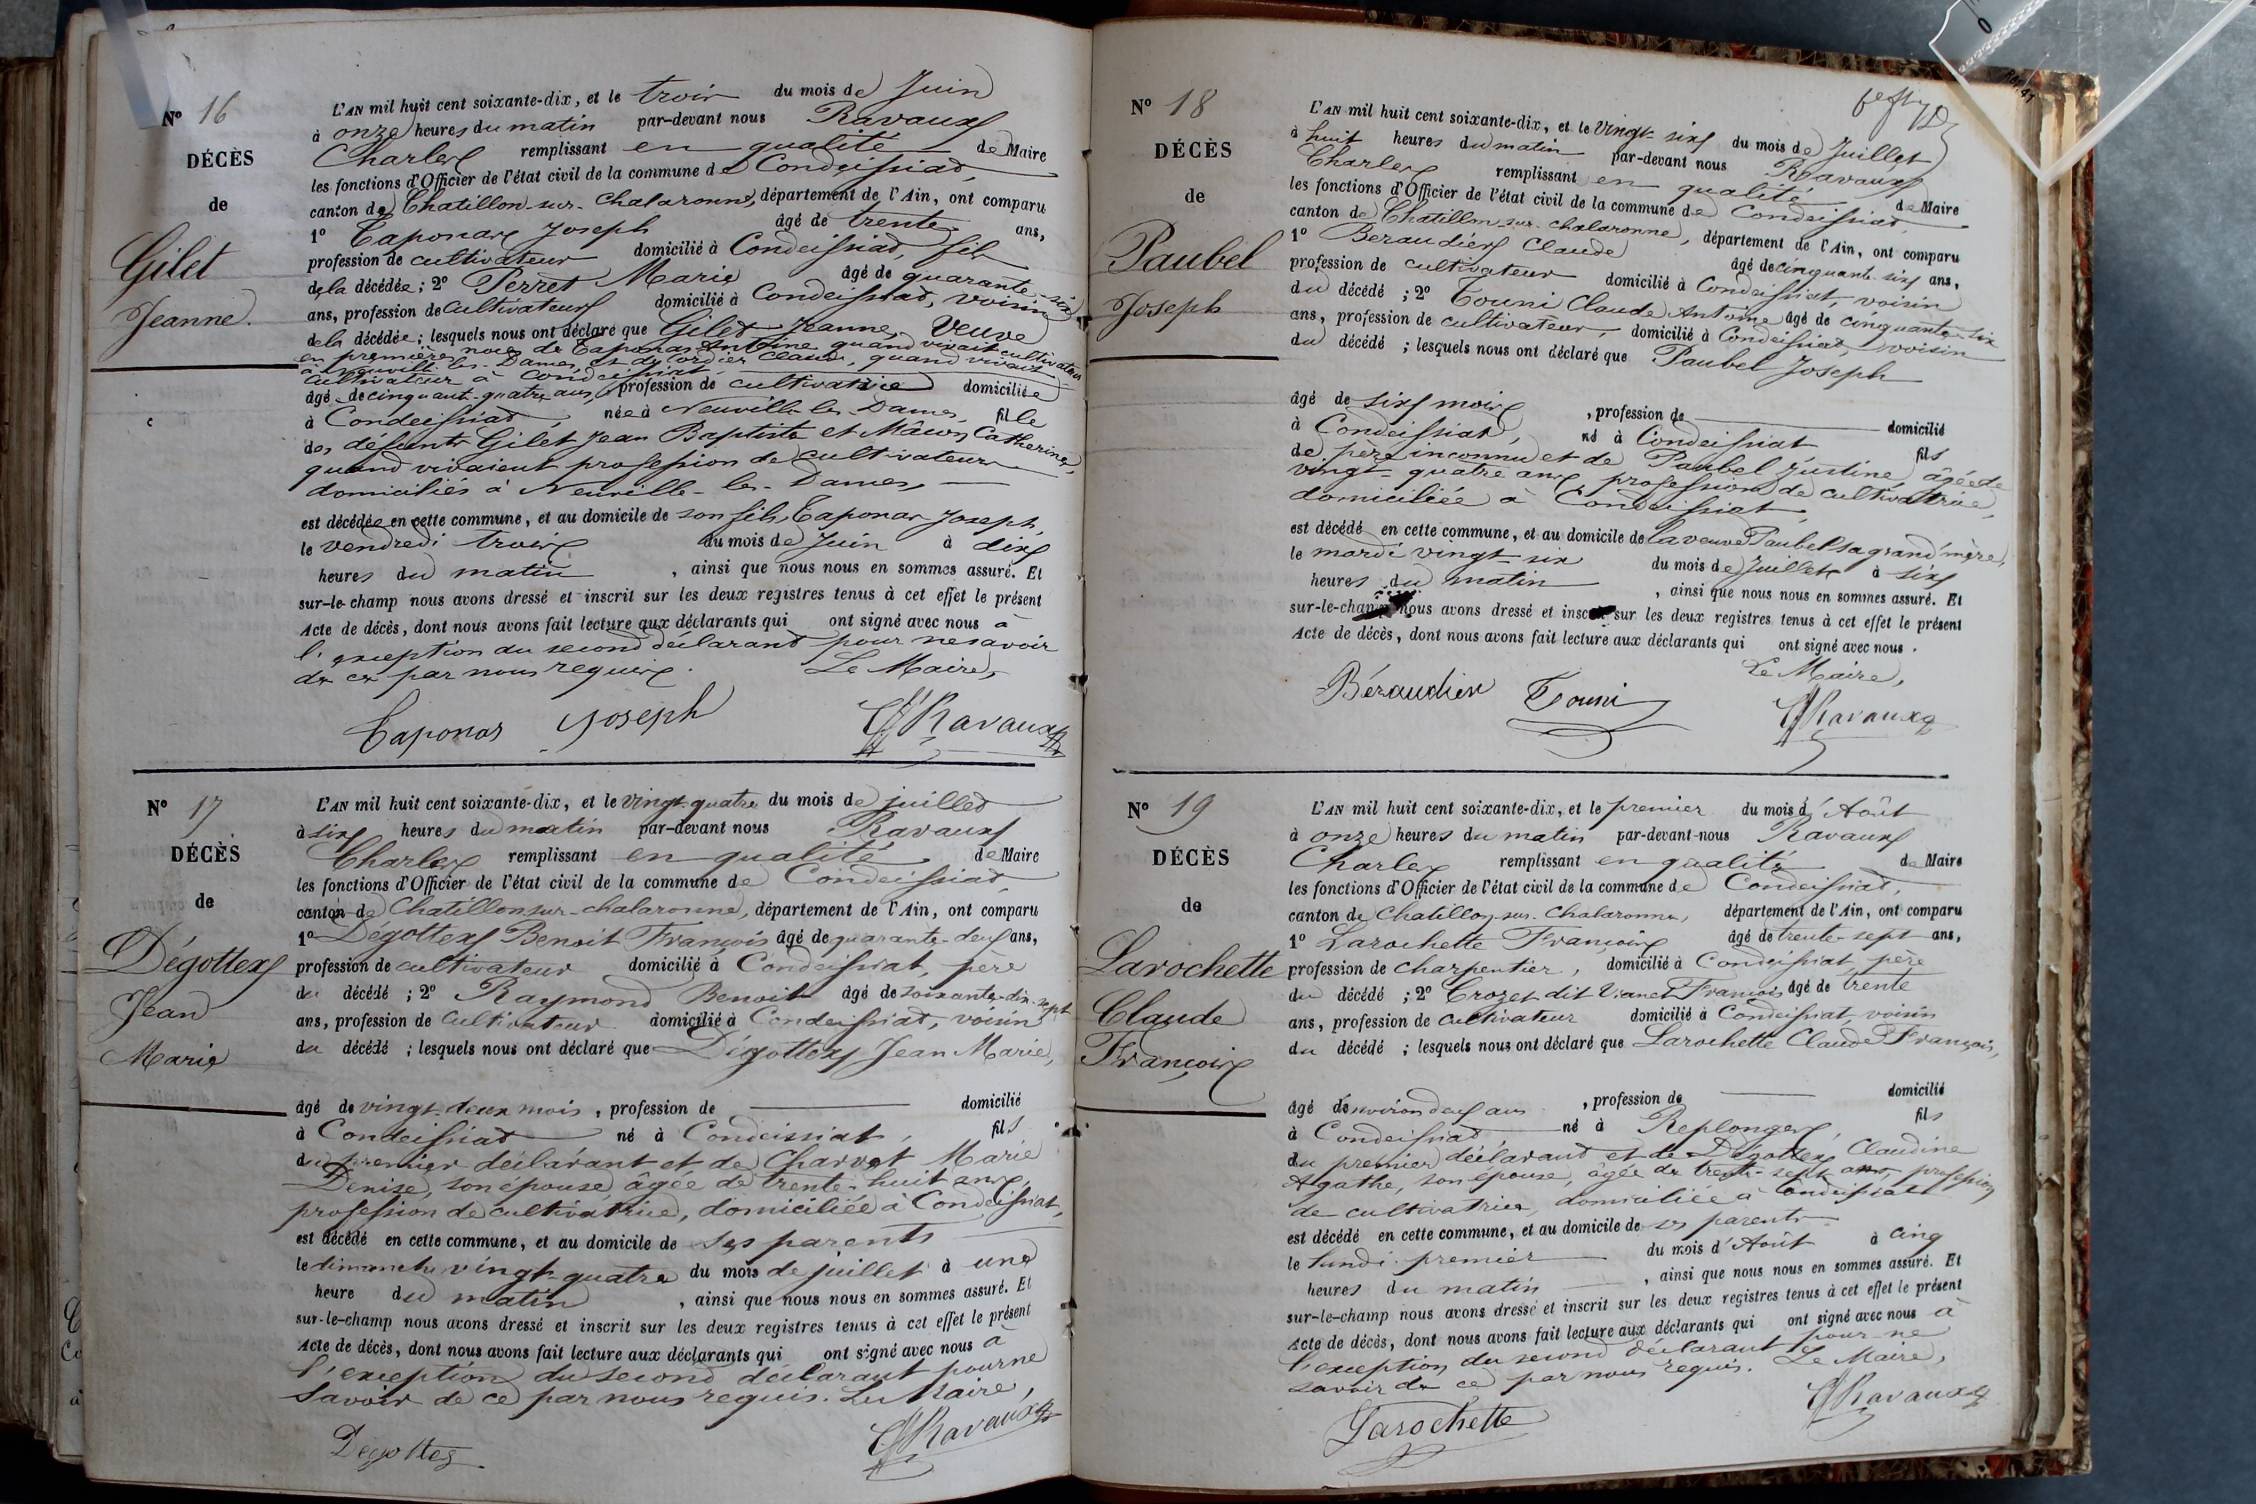 N° 16
DÉCÈS
de
Gilet
Jeanne.
L'AN mil huit cent soixante-dix, et le trois du mois de Juin
à onze heures du matin par-devant nous Ravaux
Charles remplissant en qualité de Maire
les fonctions d'Officier de l'état civil de la commune de Condeissiat,
canton de Chatillon-sur-Chalaronne, département de l'Ain, ont comparu
1° Taponas Joseph âgé de trente ans,
profession de cultivateur domicilié à Condeissiat, fils
de la décédée ; 2° Perret Marie âgé de quarante-six
ans, profession de cultivateur domicilié à Condeissiat, voisin
de la décédée ; lesquels nous ont déclaré que Gilet Jeanne, Veuve
en premières noces de Taponas Antoine quand vivait cultivateur
à Neuville-les-Dames, et de Cordier Claude, quand vivait
cultivateur à Condeissiat
âgé de cinquante-quatre ans, profession de cultivatrice domiciliée
à Condeissiat, née à Neuville-les-Dames, fille
des défunts Gilet Jean Baptiste et Mâcon Catherine,
quand vivaient profession de cultivateurs
domiciliés à Neuville-les-Dames,
est décédée en cette commune, et au domicile de son fils, Taponas Joseph,
le vendredi trois du mois de Juin à dix
heures du matin , ainsi que nous nous en sommes assuré. Et
sur-le-champ nous avons dressé et inscrit sur les deux registres tenus à cet effet le présent
Acte de décès, dont nous avons fait lecture aux déclarants qui ont signé avec nous à
l'exception du second déclarant pour ne savoir
de ce par nous requis. Le Maire,
Taponas Joseph Ravaux
N° 17
DÉCÈS
de
Dégottex
Jean
Marie
L'AN mil huit cent soixante-dix, et le vingt-quatre du mois de juillet
à six heures du matin par-devant nous Ravaux
Charles remplissant en qualité de Maire
les fonctions d'Officier de l'état civil de la commune de Condeissiat,
canton de Chatillon sur-chalaronne, département de l'Ain, ont comparu
1° Dégottex Benoit François âgé de quarante-deux ans,
profession de cultivateur domicilié à Condeissiat, père
du décédé ; 2° Raymond Benoit âgé de soixante-dix-sept
ans, profession de cultivateur domicilié à Condeissiat, voisin
du décédé ; lesquels nous ont déclaré que Dégottex Jean Marie,
âgé de vingt-deux mois, profession de domicilié
à Condeissiat né à Condeissiat, fils
du premier déclarant et de Charvet Marie
Denise, son épouse âgée de trente-huit ans,
profession de cultivatrice, domiciliée à Condeissiat,
est décédé en cette commune, et au domicile de ses parents
le dimanche vingt-quatre du mois de juillet à une
heure du matin , ainsi que nous nous en sommes assuré. Et
sur-le-champ nous avons dressé et inscrit sur les deux registres tenus à cet effet le présent
Acte de décès, dont nous avons fait lecture aux déclarants qui ont signé avec nous à
l'exception du second déclarant pour ne
savoir de ce par nous requis. Le Maire,
Dégottex Ravaux
N° 18
DÉCÈS
de
Paubel
Joseph
L'AN mil huit cent soixante-dix, et le vingt-six du mois de Juillet
à huit heures du matin par-devant nous Ravaux
Charles remplissant en qualité de Maire
les fonctions d'Officier de l'état civil de la commune de Condeissiat,
canton de Chatillon-sur-chalaronne, département de l'Ain, ont comparu
1° Beraudier Claude âgé de cinquante-six ans,
profession de cultivateur domicilié à Condeissiat, voisin
du décédé ; 2° Touni Claude Antoine âgé de cinquante-six
ans, profession de cultivateur, domicilié à Condeissiat, voisin
du décédé ; lesquels nous ont déclaré que Paubel Joseph
âgé de six mois , profession de domicilié
à Condeissiat, né à Condeissiat fils
de père inconnu et de Paubel Justine, âgée de
vingt-quatre ans, profession de cultivatrice,
domiciliée à Condeissiat,
est décédé en cette commune, et au domicile de la veuve Paubel sa grand'mère,
le mardi vingt-six du mois de Juillet à six
heures du matin , ainsi que nous nous en sommes assuré. Et
sur-le-champ nous avons dressé et inscrit sur les deux registres tenus à cet effet le présent
Acte de décès, dont nous avons fait lecture aux déclarants qui ont signé avec nous.
Le Maire,
Béraudier Touni Ravaux
N° 19
DÉCÈS
de
Larochette
Claude
François
L'AN mil huit cent soixante-dix, et le premier du mois d'Août
à onze heures du matin par-devant-nous Ravaux
Charles remplissant en qualité de Maire
les fonctions d'Officier de l'état civil de la commune de Condeissiat,
canton de Chatillon-sur-Chalaronne, département de l'Ain, ont comparu
1° Larochette François âgé de trente-sept ans,
profession de charpentier, domicilié à Condeissiat, père
du décédé ; 2° Crozet dit Vianet François âgé de trente
ans, profession de cultivateur domicilié à Condeissiat, voisin
du décédé ; lesquels nous ont déclaré que Larochette Claude François,
âgé d'environ deux ans , profession de domicilié
à Condeissiat né à Replonges, fils
du premier déclarant et de Dégottex Claudine
Agathe, son épouse, âgée de trente-sept ans, profession
de cultivatrice, domiciliée à Condeissiat
est décédé en cette commune, et au domicile de ses parents
le lundi premier du mois d'Août à cinq
heures du matin , ainsi que nous nous en sommes assuré. Et
sur-le-champ nous avons dressé et inscrit sur les deux registres tenus à cet effet le présent
Acte de décès, dont nous avons fait lecture aux déclarants qui ont signé avec nous à
l'exception du second déclarant pour ne
savoir de ce par nous requis. Le Maire,
Larochette Ravaux